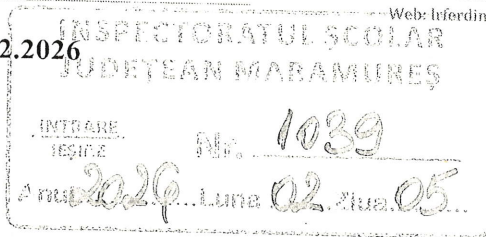 Web: lrferdin
2.2026
INSPECTORATUL ȘCOLAR
JUDEȚEAN MARAMUREȘ
INTRARE
IEȘIRE
Nr. 1039
Anul 2026 Luna 02 Ziua 05